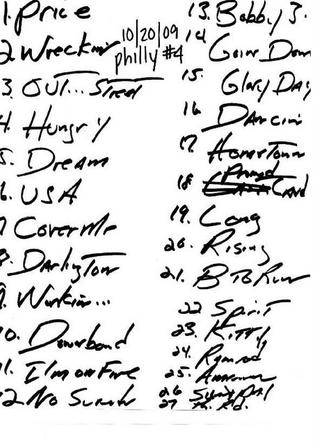 1. Price
10/20/09
philly #4
2. Wreckin
3. OUT... STreet
4. Hungry
5. Dream
6. USA
7 Cover Me
8. Darlington
9. Workin...
10. Downbound
11. I'm on Fire
12. No Surrender
13. Bobby J.
14 Goin Down
15. Glory Day
16 Dancin
17. HomeTown
18 Promised Land
19. Long
20. Rising
21. B To Run
22 Spirit
23. Kitty
24. Ramrod
25. American
26
27. Th. Rd.